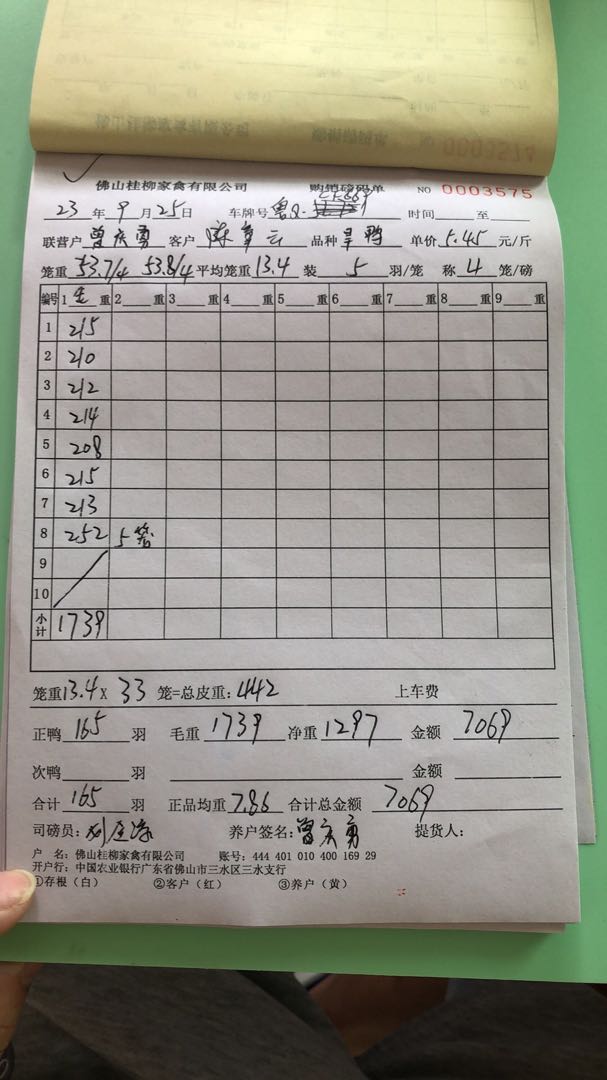 0003574
佛山桂柳家禽有限公司 购销磅码单 NO 0003575
23 年 9 月 25 日 车牌号 时间 至
联营户 曾庆勇 客户 陈 云 品种 旱鸭 单价 5.45 元/斤
笼重 53.7/4 53.8/4 平均笼重 13.4 装 5 羽/笼 称 4 笼/磅
编号 1 毛 重 2 重 3 重 4 重 5 重 6 重 7 重 8 重 9 重
1 215
2 210
3 212
4 214
5 208
6 215
7 213
8 252 5笼
9
10
小计 1739
笼重 13.4 X 33 笼=总皮重: 442 上车费
正鸭 165 羽 毛重 1739 净重 1297 金额 7069
次鸭 羽 金额
合计 165 羽 正品均重 7.86 合计总金额 7069
司磅员: 养户签名: 曾庆勇 提货人:
户 名: 佛山桂柳家禽有限公司 账号: 444 401 010 400 169 29
开户行: 中国农业银行广东省佛山市三水区三水支行
①存根（白） ②客户（红） ③养户（黄）